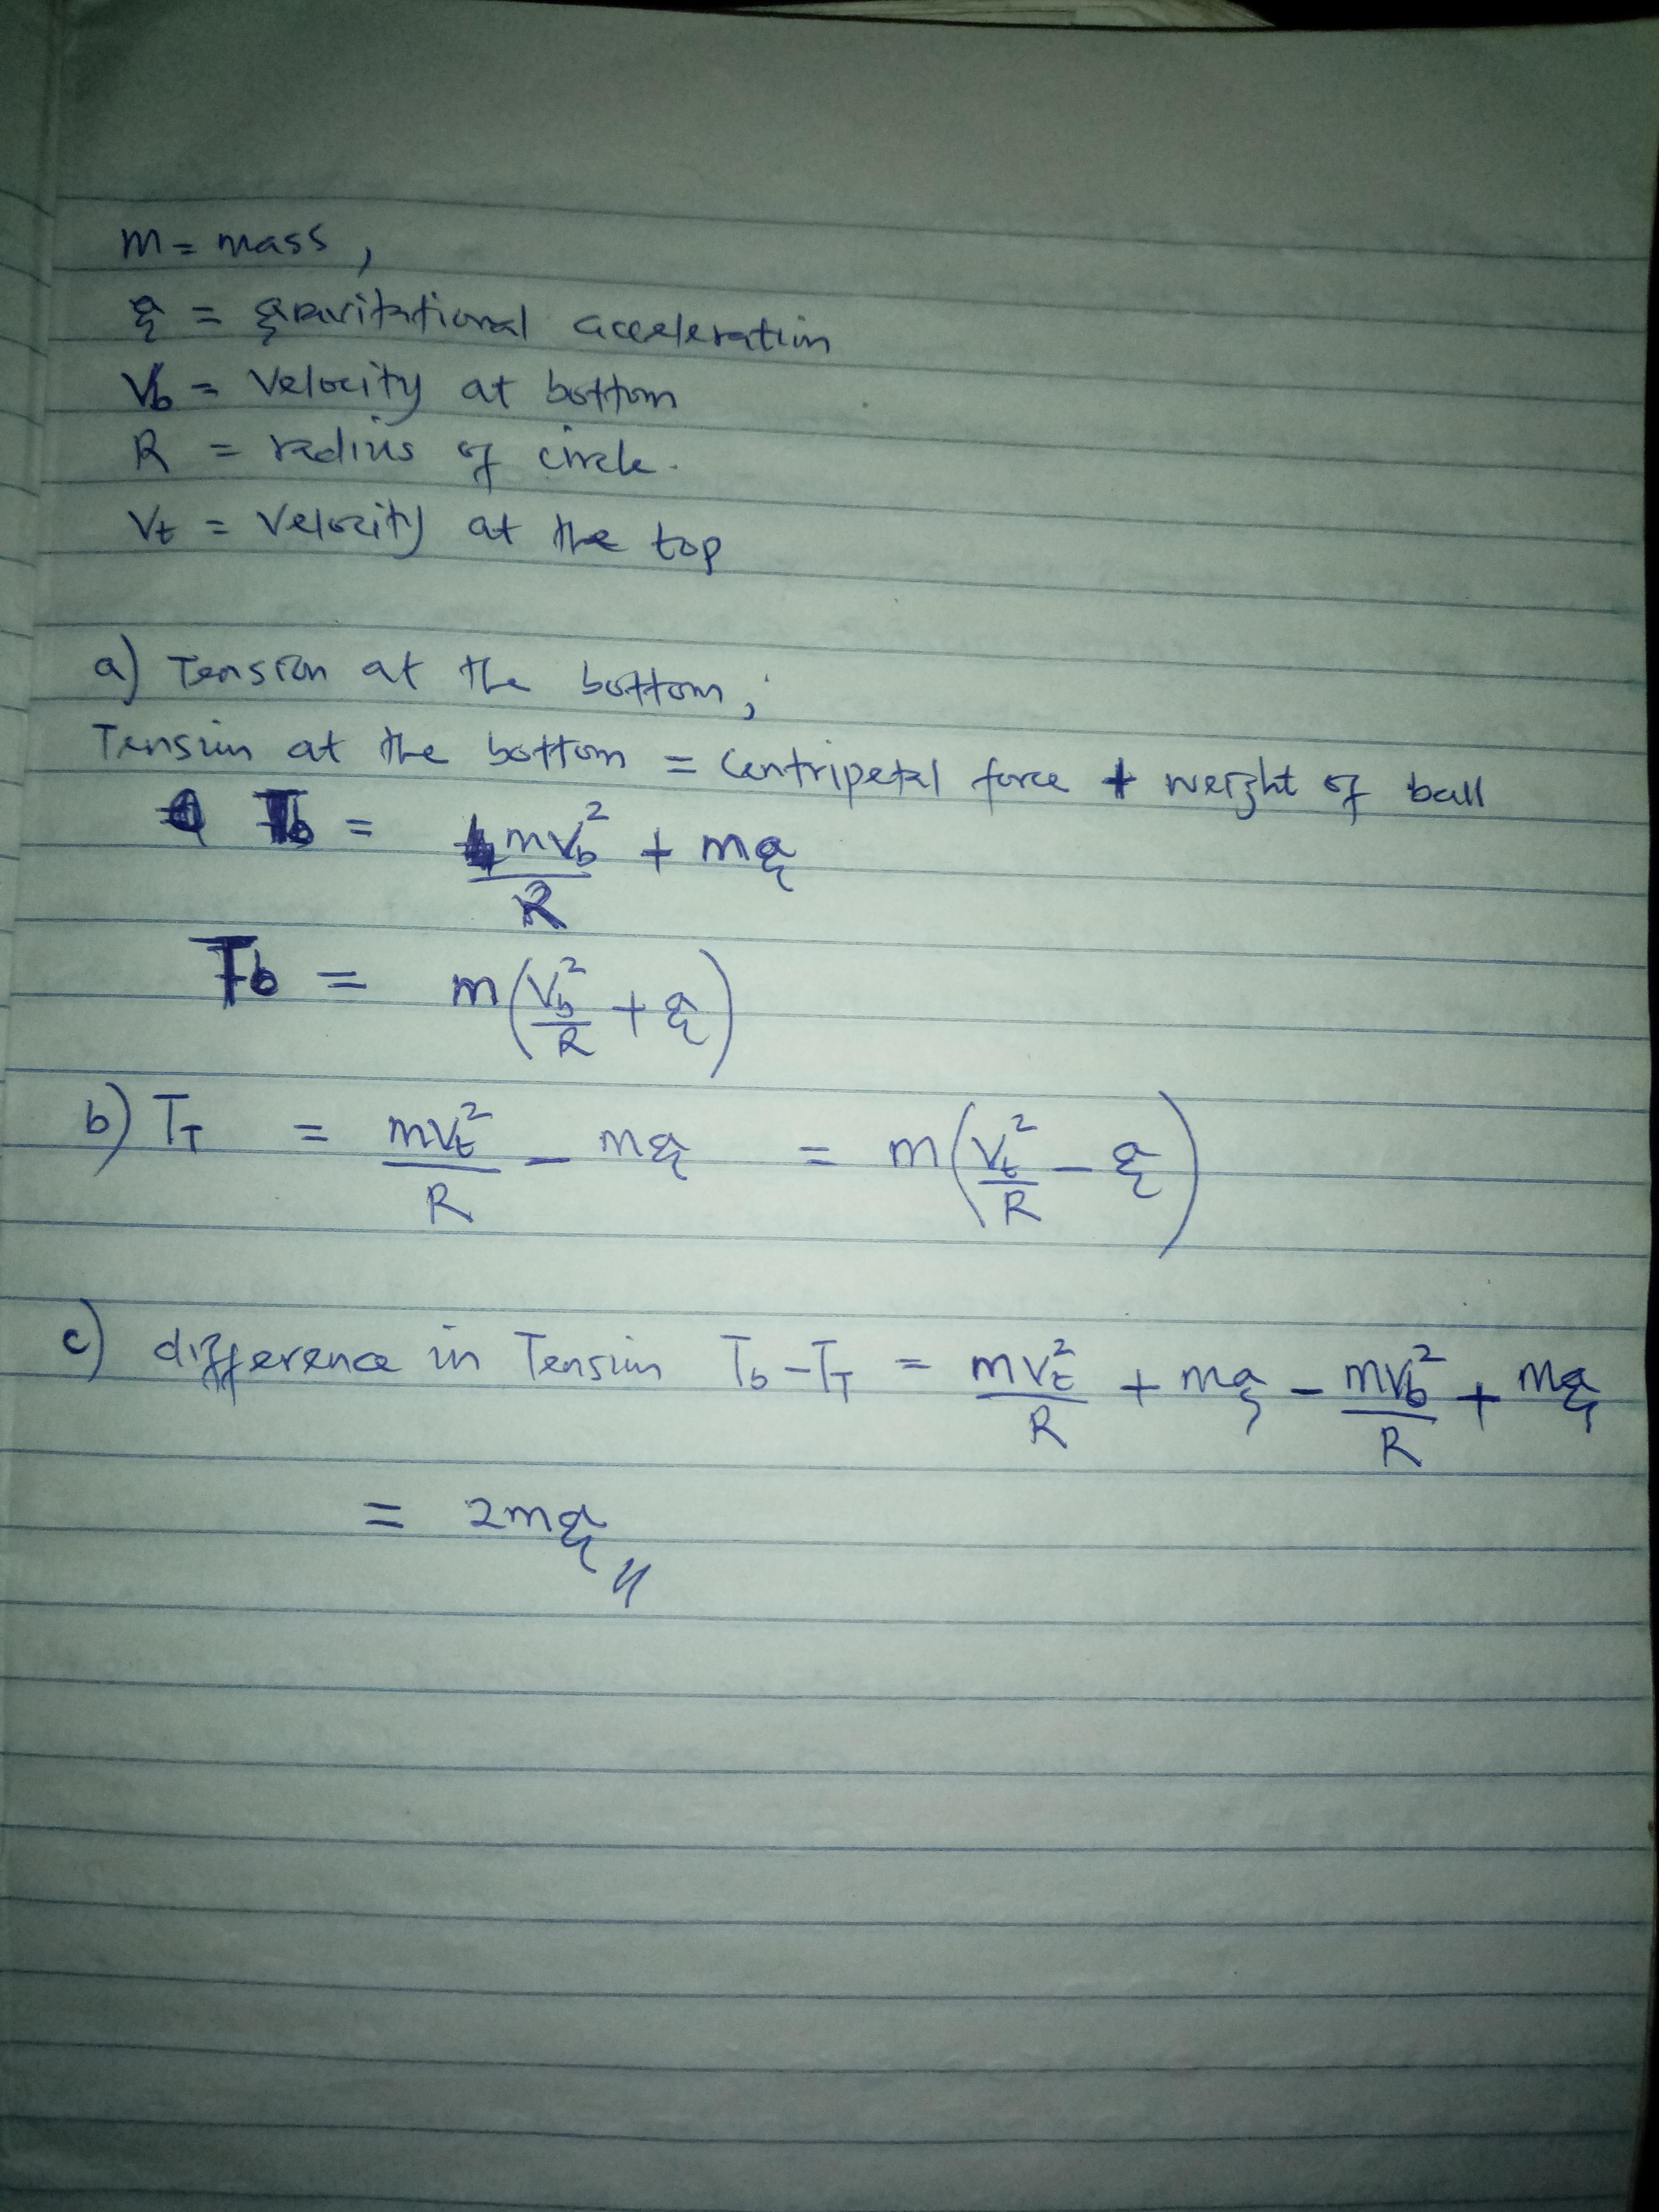 m = mass,
g = gravitational acceleration
Vb = Velocity at bottom
R = radius of circle.
Vt = Velocity at the top
a) Tension at the bottom,
Tension at the bottom = Centripetal force + weight of ball
Tb = mVb²/R + mg
Tb = m(Vb²/R + g)
b) TT = mVt²/R - mg = m(Vt²/R - g)
c) difference in Tension Tb - TT = mVt²/R + mg - mVb²/R + mg
= 2mg